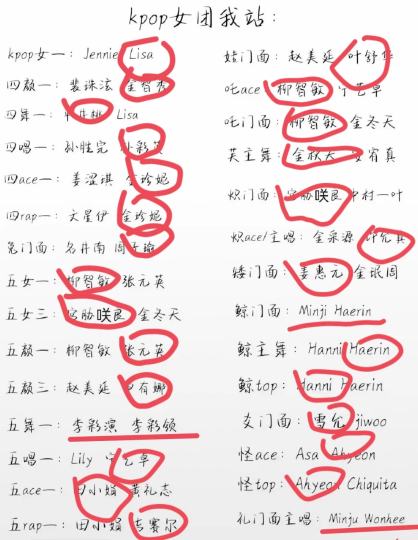 kpop女团我站:
kpop女一: Jennie Lisa
四颜一: 裴珠泫 金智秀
四舞一: Lisa
四唱一: 孙胜完 朴彩英
四ace一: 姜涩琪 金珍妮
四rap一: 文星伊 金珍妮
兔门面: 名井南 周子瑜
五女一: 柳智敏 张元英
五女三: 宫胁咲良 金冬天
五颜一: 柳智敏 张元英
五颜三: 赵美延 申有娜
五舞一: 李彩演 李彩领
五唱一: Lily 宁艺卓
五ace一: 田小娟 黄礼志
五rap一: 田小娟 吉赛尔
娃门面: 赵美延 叶舒华
吒ace 柳智敏 宁艺卓
吒门面: 柳智敏 金冬天
芙主舞: 金秋天 安宥真
炽门面: 宫胁咲良 中村一叶
炽ace/主唱: 金采源 许允真
矮门面: 姜惠元 金珉周
鲸门面: Minji Haerin
鲸主舞: Hanni Haerin
鲸top: Hanni Haerin
门面: 雪允 jiwoo
怪ace: Asa Ahyeon
怪top: Ahyeon Chiquita
礼门面主唱: Minju Wonhee